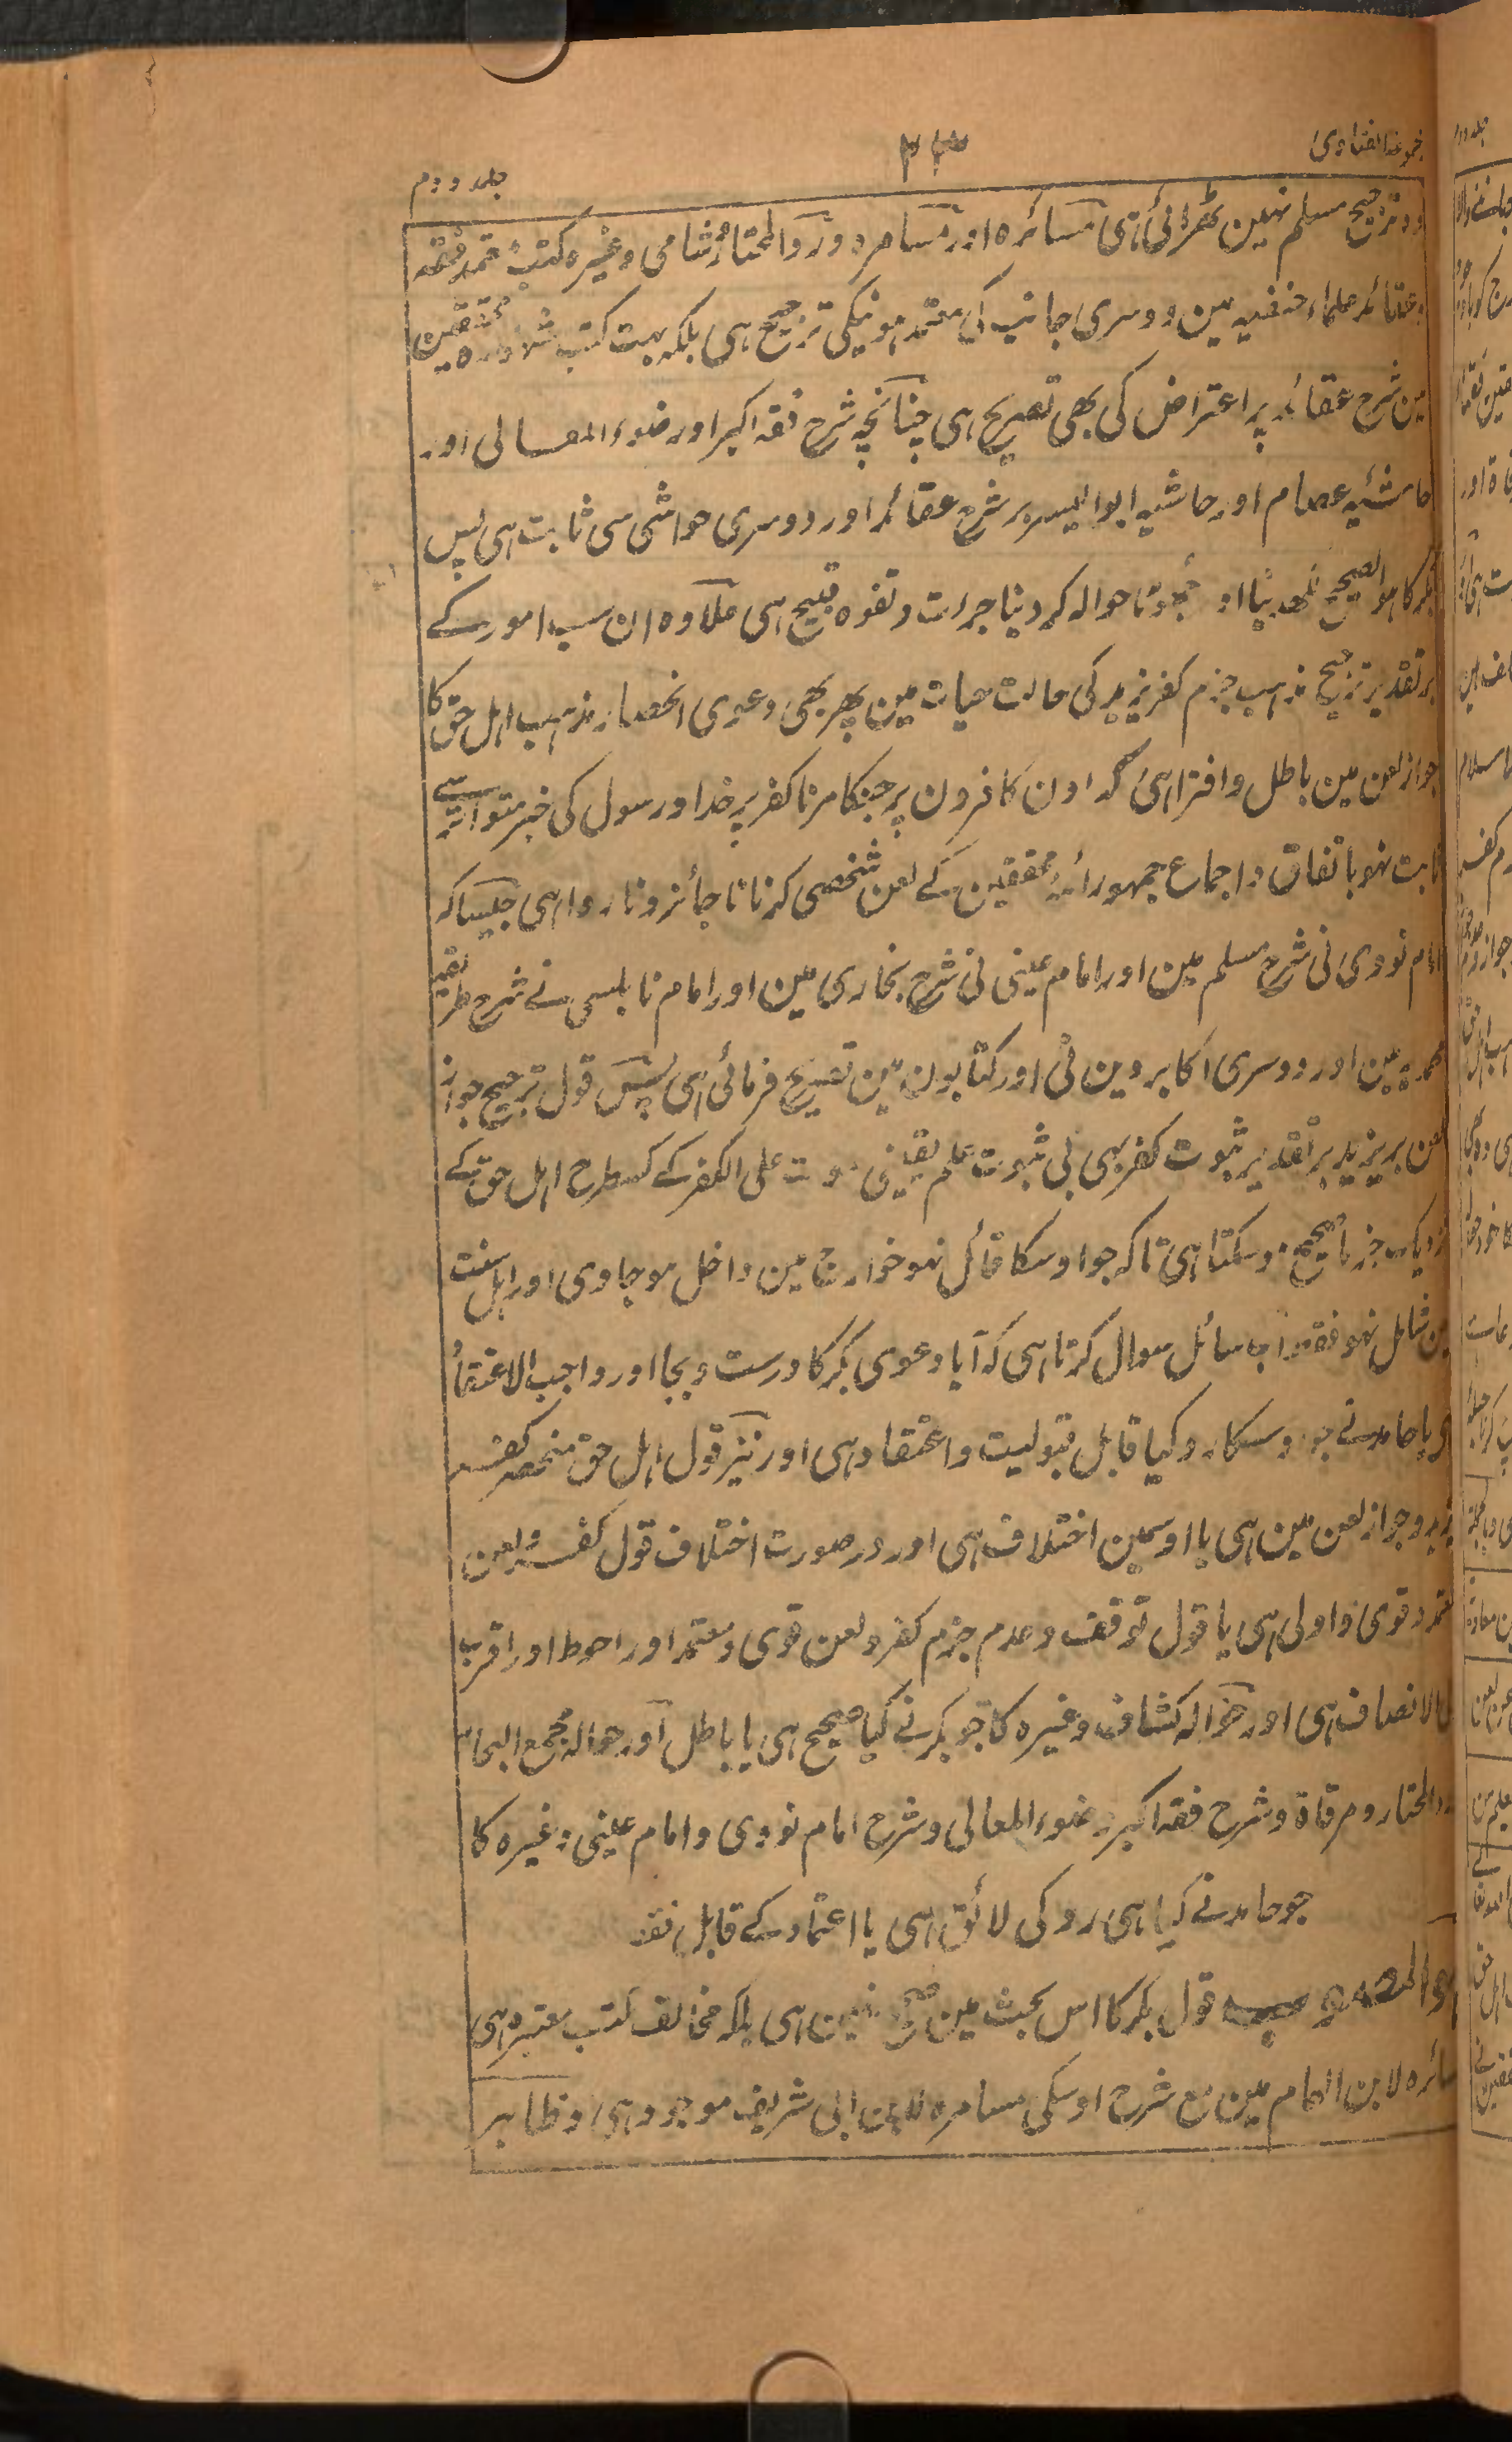 مجموعۃ الفتاوی
۲۳
جلد دوم
وہ ترجیح مسلم نہین ٹھرائی ہی مسائرہ اور مسامرہ ورد المحتار شامی وغیرہ کتب معتمد فقہ
وعقائد علماء حنفیہ مین دوسری جانب کی معتمد ہونیکی ترجیح ہی بلکہ بہت کتب محققین
مین شرح عقائد پر اعتراض کی بھی تصریح ہی چنانچہ شرح فقہ اکبر اور ضوء المعالی اور
حاشیہ عصام اور حاشیہ ابو الیسر بر شرح عقائد اور دوسری حواشی سی ثابت ہی پس
بکر کا ہو الصحیح لکھدینا اور جھوٹا حوالہ کر دینا جرات و تفوہ قبیح ہی علاوہ ان سب امور کے
بر تقدیر ترجیح مذہب جزم کفر یزید کی حالت حیات مین پھر بھی دعوی انحصار مذہب اہل حق کا
جواز لعن مین باطل وافترا ہی کہ اون کافرون پر جنکا مرنا کفر پر خدا اور سول کی خبر متواتر سے
ثابت نہو باتفاق واجماع جمہور ائمہ محققین کے لعن شخصی کرنا ناجائز وناروا ہی جیسا کہ
امام نووی نی شرح مسلم مین اور امام عینی نی شرح بخاری مین اور امام نابلسی نے شرح طریقہ
محمدیہ مین اور دوسری اکابر دین نی اور کتابون مین تصریح فرمائی ہی پس قول ترجیح جواز
لعن بر یزید بر تقدیر ثبوت کفر بھی بی ثبوت علم یقینی موت علی الکفر کے کسطرح اہل حق کے
نزدیک جزماً صحیح ہوسکتا ہی تاکہ جو اوسکا قائل نہو خوارج مین داخل ہو جاوی اور اہل سنت
مین شامل نہو فقط اب سائل سوال کرتا ہی کہ آیا دعوی بکر کا درست وبجا اور واجب الاعتقاد
ہی یا حامد نے جو اوسکا رد کیا قابل قبولیت واعتقاد ہی اور نیز قول اہل حق منحصر کفر
یزید وجواز لعن مین ہی یا اوسمین اختلاف ہی اور در صورت اختلاف قول کفر ولعن
معتمد وقوی واولی ہی یا قول توقف وعدم جزم کفر ولعن قوی ومعتمد اور احوط اور اقرب
الی الانصاف ہی اور حوالہ کشاف وغیرہ کا جو بکر نے کیا صحیح ہی یا باطل اور حوالہ مجمع البحار
ورد المحتار ومرقاۃ وشرح فقہ اکبر وضوء المعالی وشرح امام نووی وامام عینی وغیرہ کا
جو حامد نے کیا ہی رد کی لائق ہی یا اعتماد کے قابل فقط
ہو المصوب قول بکر کا اس بحث مین صحیح نہین ہی بلکہ مخالف کتب معتبرہ ہی
مسائرہ لابن الہمام مین مع شرح اوسکی مسامرہ لابن ابی شریف موجود ہی وظاہر